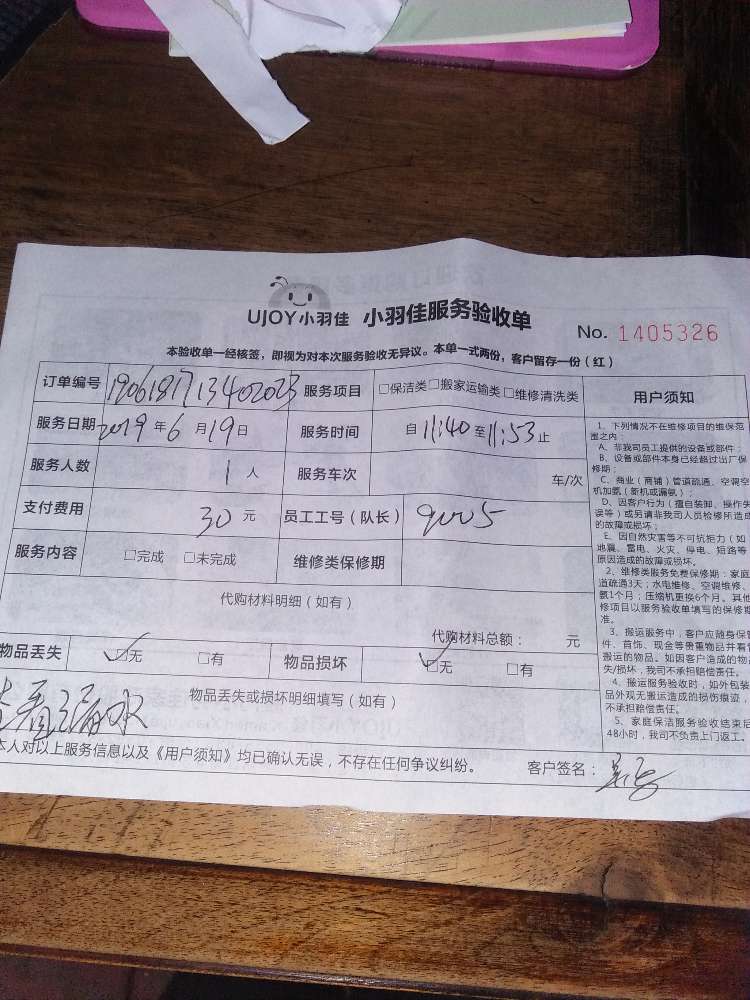 UJOY小羽佳 小羽佳服务验收单
No. 1405326
本验收单一经核签，即视为对本次服务验收无异议。本单一式两份，客户留存一份（红）
订单编号 1906181713402023 服务项目 □保洁类□搬家运输类□维修清洗类 用户须知
服务日期 2019 年 6 月 19 日 服务时间 自 11:40 至 11:53 止
服务人数 1 人 服务车次 车/次
支付费用 30 元 员工工号（队长） 9005
服务内容 □完成 □未完成 维修类保修期
代购材料明细（如有）
代购材料总额： 元
物品丢失 ☑无 □有 物品损坏 ☑无 □有
物品丢失或损坏明细填写（如有）
查看漏水
本人对以上服务信息以及《用户须知》均已确认无误，不存在任何争议纠纷。 客户签名：
1、下列情况不在维修项目的维保范
围之内：
A、非我司员工提供的设备或部件；
B、设备或部件本身已经超过出厂保
修期；
C、商业（商铺）管道疏通、空调空
机加氨（新机或漏氨）；
D、因客户行为（擅自装卸、操作失
误等）或另请非我司人员检修所造成
的故障或损坏；
E、因自然灾害等不可抗拒力（如
地震、雷电、火灾、停电、短路等
原因造成的故障或损坏。
2、维修类服务免费保修期：家庭
道疏通3天；水电维修、空调维修、
氨1个月；压缩机更换6个月。其他
修项目以服务验收单填写的保修期
准。
3、搬运服务中，客户应随身保管
件、首饰、现金等贵重物品并看管
搬运的物品。如因客户造成的物
失/损坏，我司不承担赔偿责任。
4、搬运服务验收时，如外包装
品外观无搬运造成的损伤痕迹，
不承担赔偿责任。
5、家庭保洁服务验收结束后
48小时，我司不负责上门返工。